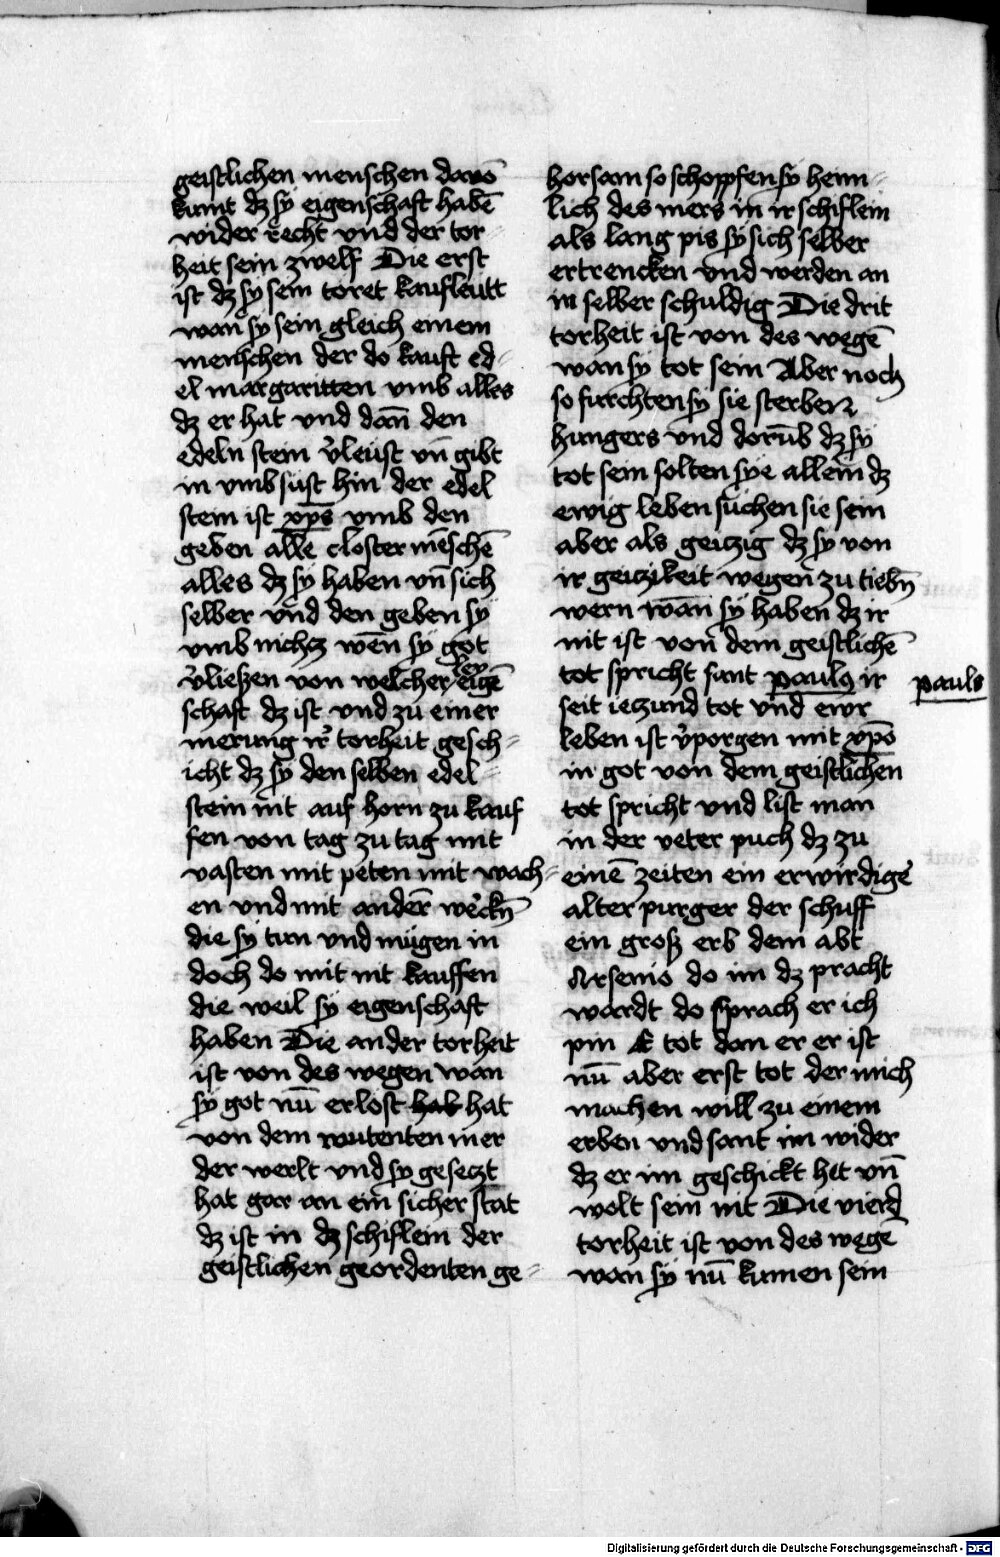 geistlichen menschen dauō
kumt dz sÿ eigenschaft habē
wider recht vnd der tor⸗
heit sein zwelf Die erst
ist dz sÿ sein toret kaufleutt
wan̄ sÿ sein gleich einem
menschen der do kauft ed⸗
el margaritten vmb alles
dz er hat vnd dan̄ den
edeln stein v̓leust vn̄ gibt
in vmb süst hin der edel
stein ist xp̄s vmb den
geben alle closter mēschē
alles dz sÿ haben vn̄ sich
selber vnd den geben sÿ
vmb nichtz wēn sÿ got
v̓liessen von welcherleÿ eigē
schaft dz ist vnd zu einer
merung ir̓ torheit gesch⸗
icht dz sÿ den selben edel⸗
stein nit auf horn zu kauf
fen von tag zu tag mit
vasten mit peten mit wach⸗
en vnd mit andern̄ we̓ckn̄
die sÿ tun vnd mügen in
doch do mit nit kauffen
die weil sÿ eigenschaft
haben Die ander torheit
ist von des wegen wan
sÿ got nū erlost hab hat
von dem wutenten mer
der werlt vnd sÿ gesetzt
hat gar an ein sicher stat
dz ist in dz schiflein der
geistlichen geordenten ge⸗
horsam so schoppfen sÿ heim⸗
lich des mers in ir schiflein
als lang pis sÿ sich selber
ertrencken vnd werden an
in selber schuldig Die drit
torheit ist von des wegē
wan sÿ tot sein Aber noch
so furchten sÿ sie sterben
hungers vnd dorūb dz sÿ
tot sein solten sye allein dz
ewig leben suchen sie sein
aber als geitzig dz sÿ von
ir geitzikeit wegen zu tiebn̄
wern wan̄ sÿ haben dz ir
nit ist von dem geistlichē
tot spricht sant paulꝯ ir
seit ietzund tot vnd ewr
leben ist v̓porgen mit xp̄o
in got von dem geistlichen
tot spricht vnd list man
in der veter puch dz zu
einē zeiten ein erwirdige̓
alter purger der schuff
ein groß erb dem abt
Arsenio do im dz pracht
wardt do sprach er ich
pin E tot dan er er ist
nū aber erst tot der mich
machen will zu einem
erben vnd sant im wider
dz er im geschickt het vn̄
wolt sein nit Die vierd
torheit ist von des wegē
wan sÿ nū kumen sein
pauls
Digitalisierung gefördert durch die Deutsche Forschungsgemeinschaft - DFG